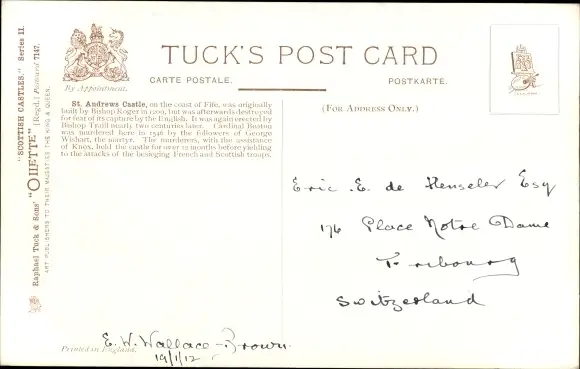 "SCOTTISH CASTLES." Series II.
"OILETTE" [Regd.] Postcard 7147.
Raphael Tuck & Sons'
ART PUBLISHERS TO THEIR MAJESTIES THE KING & QUEEN.
By Appointment.
TUCK'S POST CARD
CARTE POSTALE.
POSTKARTE.
St. Andrews Castle, on the coast of Fife, was originally
built by Bishop Roger in 1200, but was afterwards destroyed
for fear of its capture by the English. It was again erected by
Bishop Traill nearly two centuries later. Cardinal Beaton
was murdered here in 1546 by the followers of George
Wishart, the martyr. The murderers, with the assistance
of Knox, held the castle for over 12 months before yielding
to the attacks of the besieging French and Scottish troops.
(FOR ADDRESS ONLY.)
Eric. E. de Henseler Esq
176 Place Notre Dame
Fribourg
Switzerland
E. W. Wallace-Brown.
19/1/12
Printed in England.